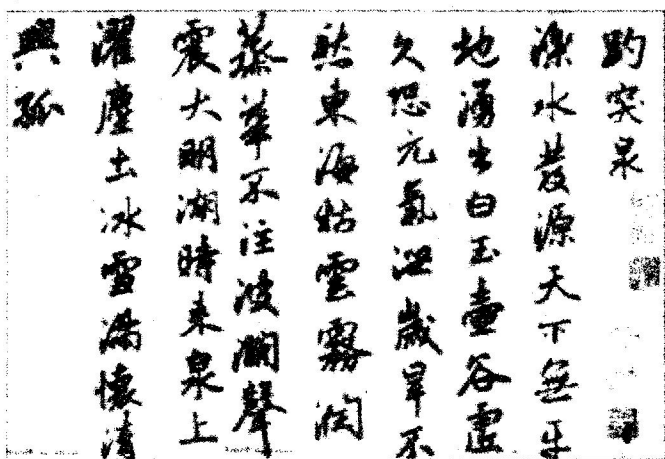 趵突泉
濼水發源天下無平
地湧出白玉壺谷虛
久恐元氣泄歲旱不
愁東海枯雲霧潤
蒸華不注波瀾聲
震大明湖時來泉上
濯塵土冰雪滿懷清
興孤